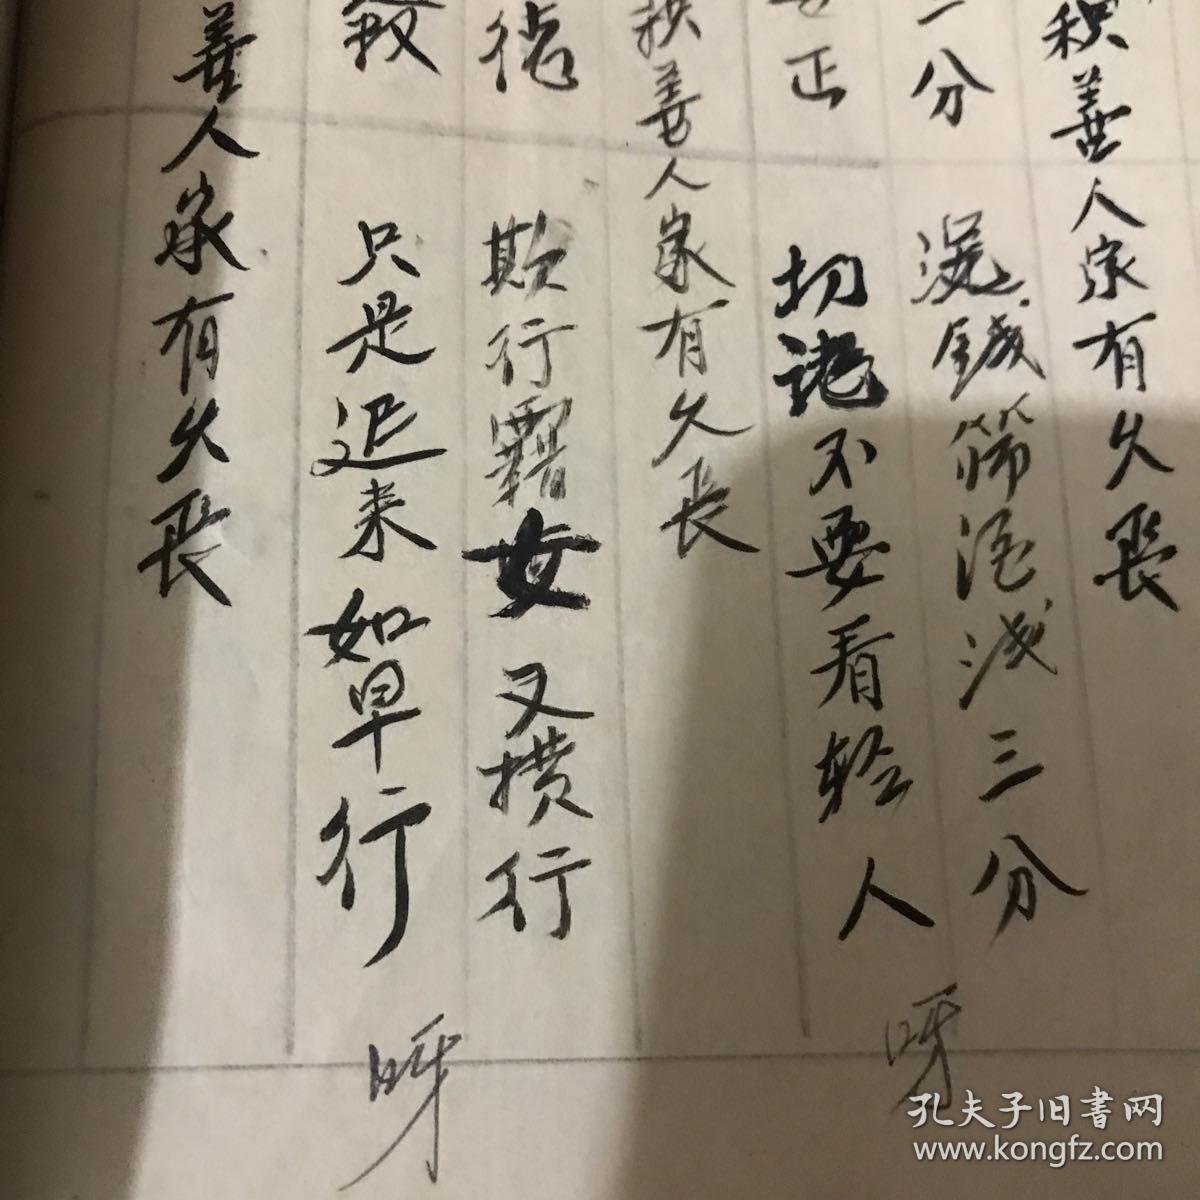 积善人家有久長
分 筛酒浅三分
正 切不要看轻人 呀
积善人家有久長
欺行霸女又横行
只是迟来如早行 呀
善人家有久長
孔夫子旧書网
www.kongfz.com